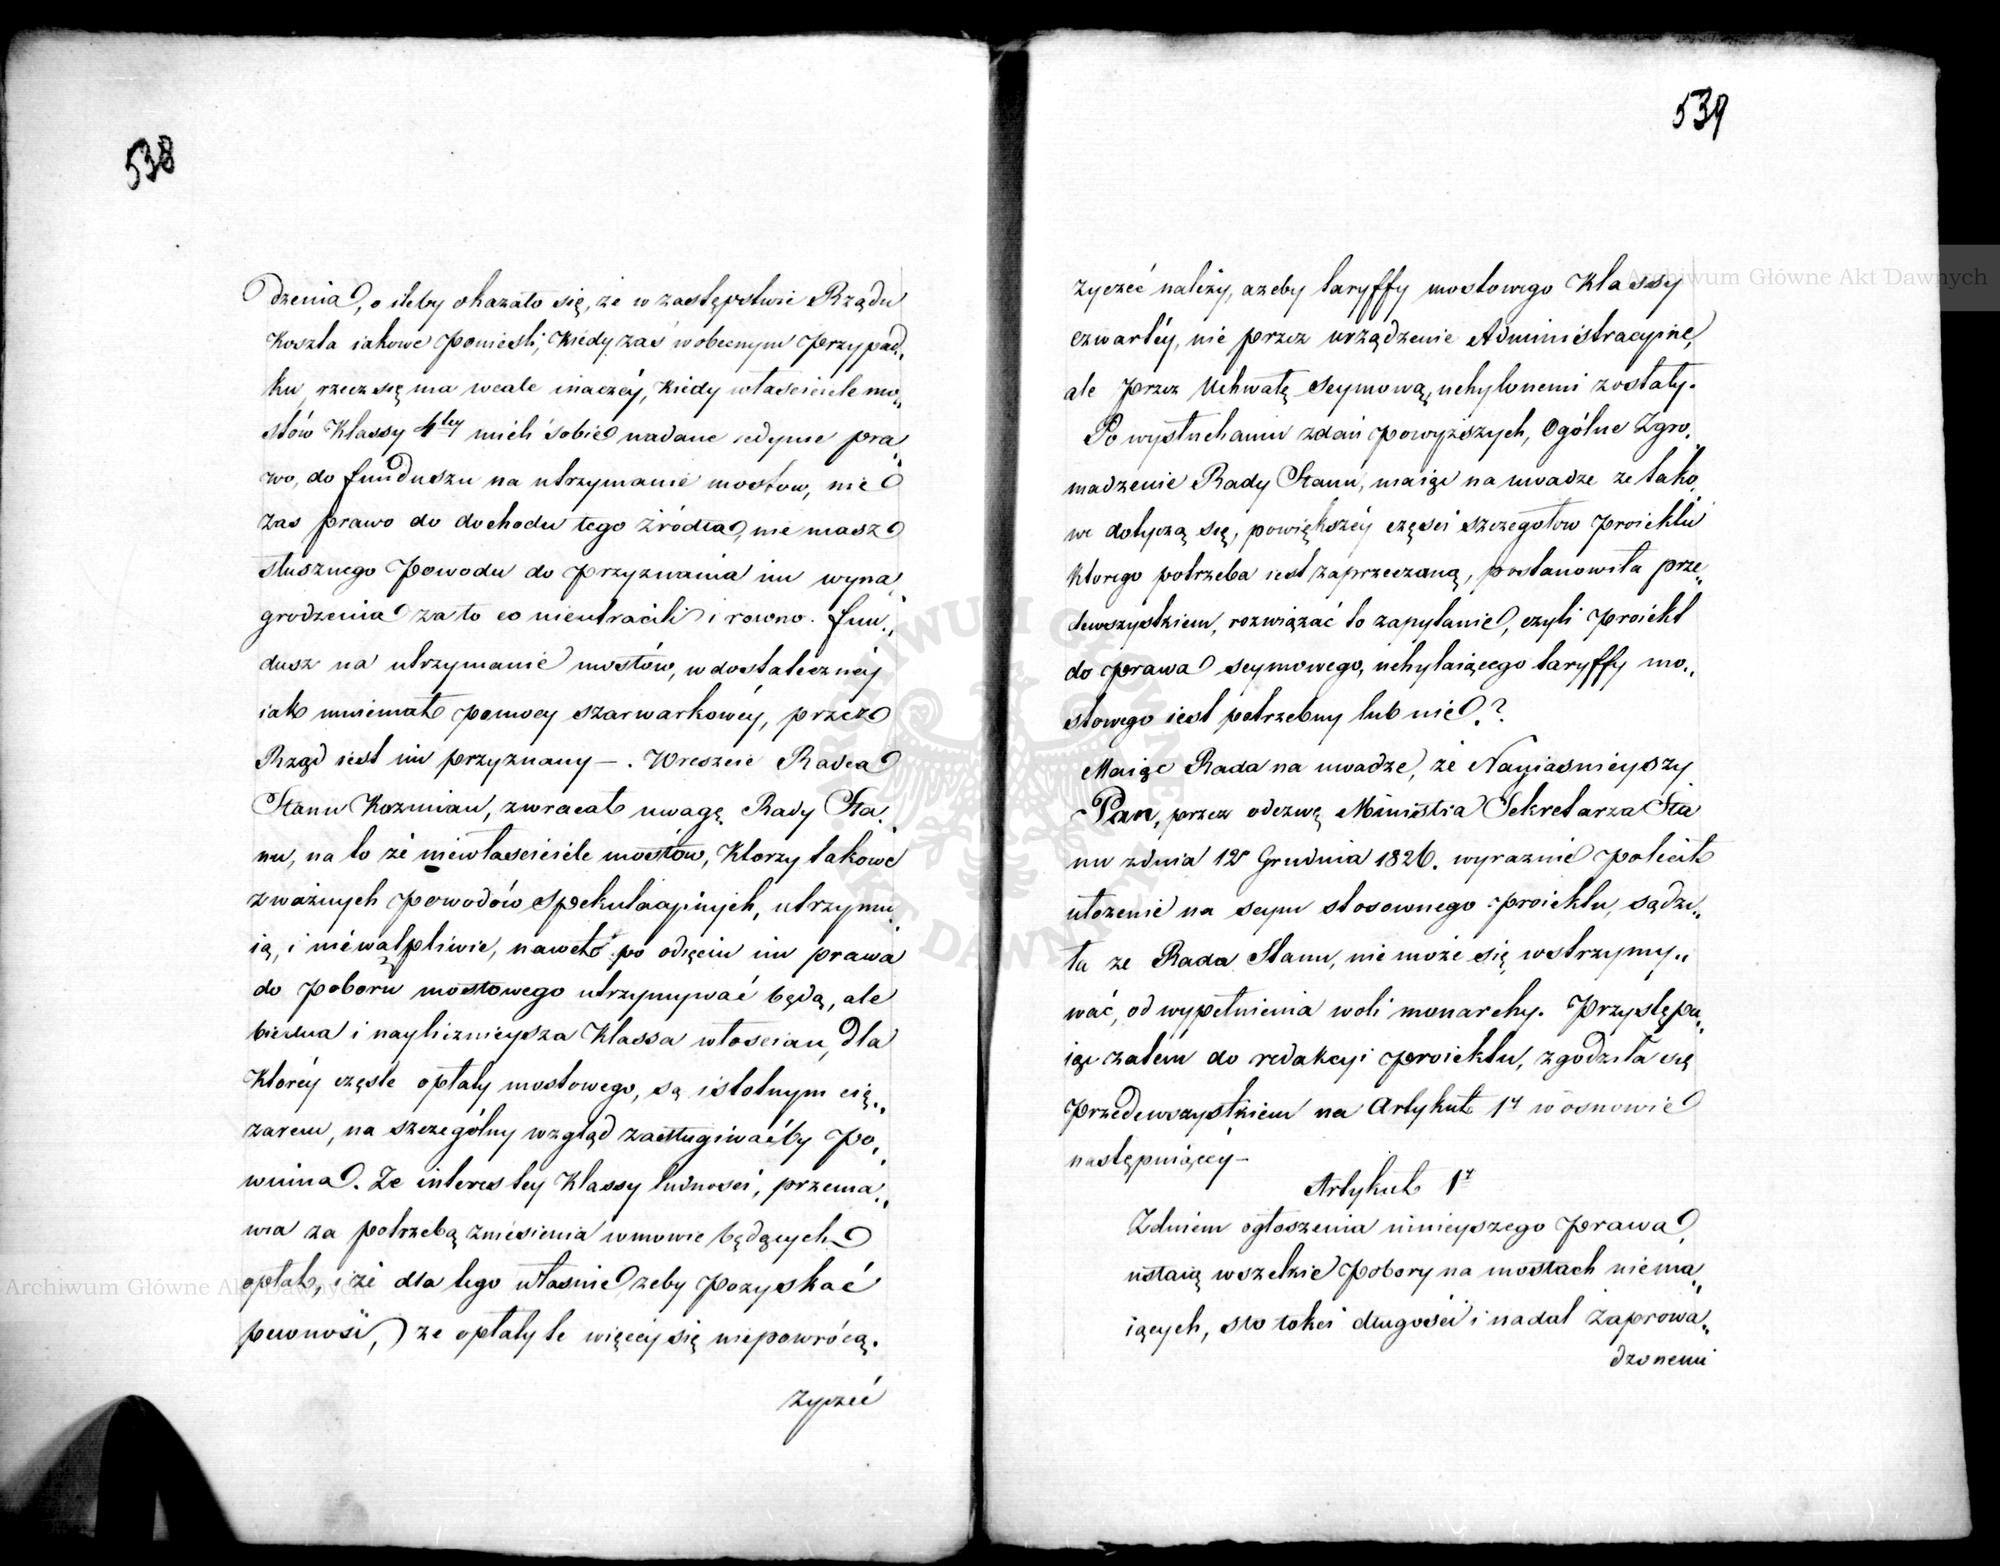 538
dzenia, o ileby okazało się, że w zastępstwie Rządu
koszta iakowe ponieśli; kiedy zaś w obecnym przypad„
ku, rzecz się ma wcale inaczéj, kiedy właściciele mo„
stów Klassy 4tey mieli sobie nadane iedynie pra„
wo, do funduszu na utrzymanie mostow, nie
zas prawo do dochodu tego źródła, nie masz
słusznego powodu do przyznania im wyna„
grodzenia za to co nieutracili i rowno. fun„
dusz na utrzymanie mostów, w dostateczney
iak mniemał pomocy szarwarkowéy, przez
Rząd iest im przyznany —. Wreszcie Radca
Stanu Kozmian, zwracał uwagę Rady Sta„
nu, na to że niewłasciciele mostów, Ktorzy takowe
z ważnych powodów spekulacyinych, utrzymu„
ią, i niewątpliwie, nawet po odięciu im prawa
do poboru mostowego utrzymywać będą, ale
biedna i naylicznieysza Klassa włoscian, dla
Któréy częste opłaty mostowego, są istotnym cię„
żarem, na szczególny wzgląd zasługiwaćby po„
winna. Ze interes tey Klassy ludnosci, przema„
wia za potrzebą zniesienia w mowie będących
opłat, i że dla tego własnie żeby pozyskać
pewnosć, że opłaty te więcéy się niepowrócą.
życzéć
539
życzéć należy, azeby taryffy mostowego Klassy
czwartéy, nie przez urządzenie Administracyine,
ale przez Uchwałę Seymową, uchylonemi zostały.
Po wysłuchaniu zdań powyższych, Ogólne Zgro„
madzenie Rady Stanu, maiąc na uwadze ze tako„
we dotyczą się, powiększéy częsci szczegołow proiektu
Ktorego potrzeba iest zaprzeczaną, postanowiła prze„
dewszystkiem, rozwiązać to zapytanie, czyli proiekt
do prawa seymowego, uchylaiącego taryffy mo„
stowego iest potrzebny lub nie?
Maiąc Rada na uwadze, że Nayiasnieyszy
Pan, przez odezwę Ministra Sekretarza Sta
nu z dnia 12 Grudnia 1826. wyraznie polecił
ułożenie na seym stosownego proiektu, sądzi„
ła ze Rada Stanu, nie może się wstrzymy„
wać, od wypełnienia woli monarchy. Przystępu„
iąc zatém do redakcyi proiektu, zgodziła się
przedewszystkiem na Artykuł 1y w osnowie
następuiącéy —
Artykuł 1y
Z dniem ogłoszenia ninieyszego prawa,
ustaią wszelkie pobory na mostach niema„
iących, sto łokci długości i nadal zaprowa„
dzonemi
Archiwum Główne Akt Dawnych
Archiwum Główne Akt Dawnych
ARCHIWUM GŁÓWNE AKT DAWNYCH